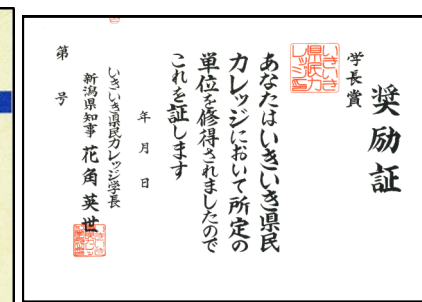 奨励証
学長賞
いきいき県民カレッジ
あなたはいきいき県民
カレッジにおいて所定の
単位を修得されましたので
これを証します
年 月 日
いきいき県民カレッジ学長
新潟県知事 花角英世
第 号